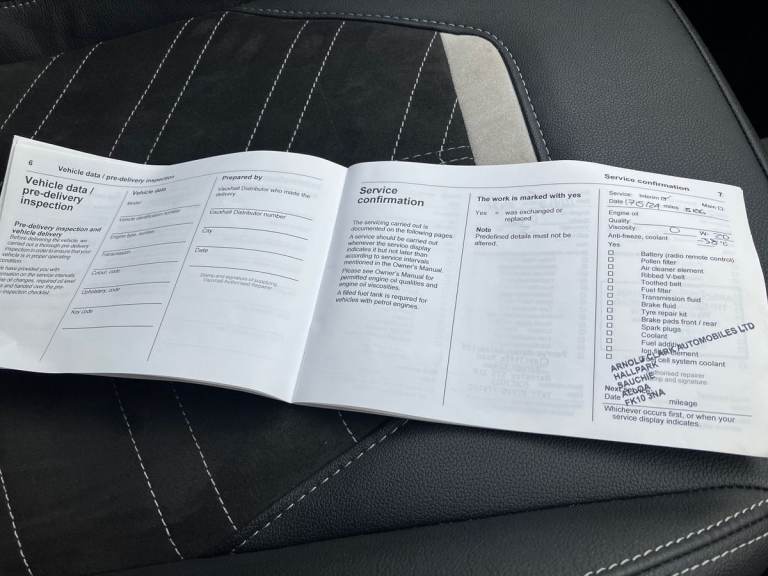 6
Vehicle data / pre-delivery inspection
Vehicle data /
pre-delivery
inspection
Pre-delivery inspection and
vehicle delivery
Before delivering the vehicle, we
carried out a thorough pre-delivery
inspection in order to ensure that your
vehicle is in proper operating
condition.
have provided you with
information on the service intervals
of changes, required oil level
and handed over the pre-
inspection checklist.
Vehicle data
Model
Vehicle identification number
Engine type, number
Transmission
Colour, code
Upholstery, code
Key code
Prepared by
Vauxhall Distributor who made the
delivery
Vauxhall Distributor number
City
Date
Stamp and signature of supplying
Vauxhall Authorised Repairer
Service
confirmation
The servicing carried out is
documented on the following pages.
A service should be carried out
whenever the service display
indicates it but not later than
according to service intervals
mentioned in the Owner's Manual.
Please see Owner's Manual for
permitted engine oil qualities and
engine oil viscosities.
A filled fuel tank is required for
vehicles with petrol engines.
The work is marked with yes
Yes = was exchanged or
replaced
Note
Predefined details must not be
altered.
Service confirmation
7
Service: Interim Main
Date miles
Engine oil
Quality:
Viscosity: 0 W-
Anti-freeze, coolant
Yes
Battery (radio remote control)
Pollen filter
Air cleaner element
Ribbed V-belt
Toothed belt
Fuel filter
Transmission fluid
Brake fluid
Tyre repair kit
Brake pads front / rear
Spark plugs
Coolant
Fuel
element
cell system coolant
ARNOLD CLARK AUTOMOBILES LTD
HALLPARK
SAUCHIE
ALLOA
FK10 3NA
repairer
and signature.
Next
Date mileage
Whichever occurs first, or when your
service display indicates.